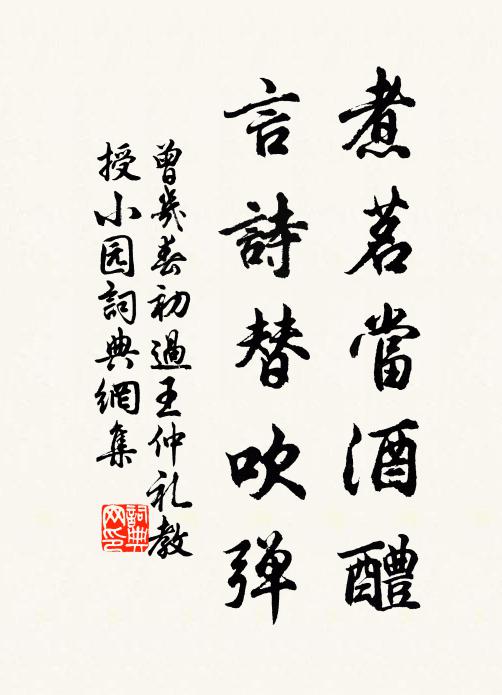 煮茗當酒醴
言詩替吹彈
曾幾春初過王仲礼教
授小园詞典網集
詞典
网印